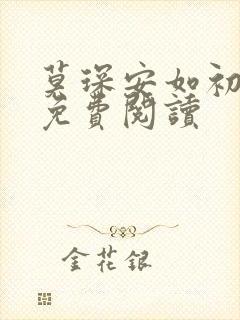 莫琛安如初
免費閱讀
金花銀